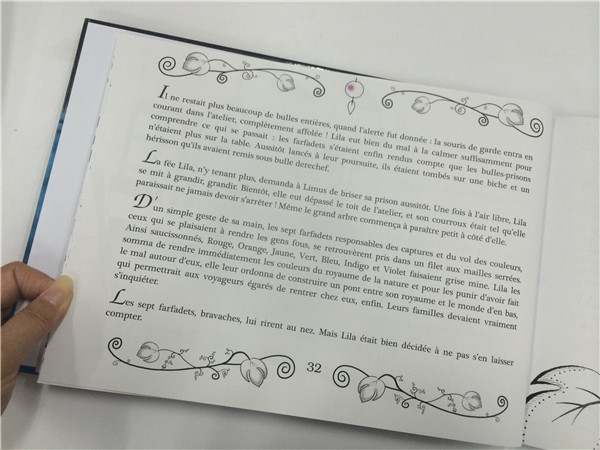 Il ne restait plus beaucoup de bulles entières, quand l'alerte fut donnée : la souris de garde entra en
courant dans l'atelier, complètement affolée ! Lila eut bien du mal à la calmer suffisamment pour
comprendre ce qui se passait : les farfadets s'étaient enfin rendus compte que les bulles-prisons
n'étaient plus sur la table. Aussitôt lancés à leur poursuite, ils étaient tombés sur une biche et un
hérisson qu'ils avaient remis sous bulle derechef.
La fée Lila, n'y tenant plus, demanda à Limus de briser sa prison aussitôt. Une fois à l'air libre, Lila
se mit à grandir, grandir. Bientôt, elle eut dépassé le toit de l'atelier, et son courroux était tel qu'elle
paraissait ne jamais devoir s'arrêter ! Même le grand arbre commença à paraître petit à côté d'elle.
D'un simple geste de sa main, les sept farfadets responsables des captures et du vol des couleurs,
ceux qui se plaisaient à rendre les gens fous, se retrouvèrent pris dans un filet aux mailles serrées.
Ainsi saucissonnés, Rouge, Orange, Jaune, Vert, Bleu, Indigo et Violet faisaient grise mine. Lila les
somma de rendre immédiatement les couleurs du royaume de la nature et pour les punir d'avoir fait
le mal autour d'eux, elle leur ordonna de construire un pont entre son royaume et le monde d'en bas,
qui permettrait aux voyageurs égarés de rentrer chez eux, enfin. Leurs familles devaient vraiment
s'inquiéter.
Les sept farfadets, bravaches, lui rirent au nez. Mais Lila était bien décidée à ne pas s'en laisser
compter.
32